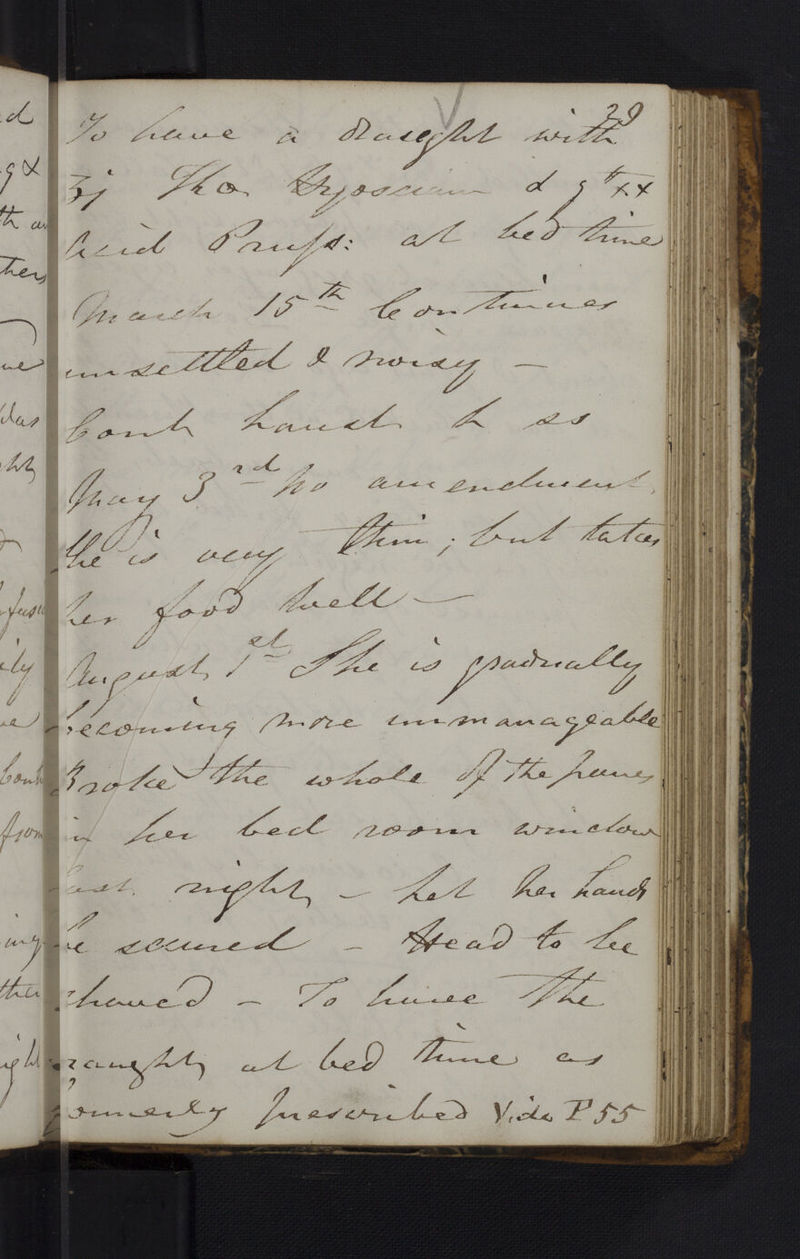 29
To have a draught with
ʒj Tha Hyosciam & gtt xx
Acid Pruss: at bed time
March 15th Continues
unsettled & noisy –
Cont haust h ss
May 3rd No amendment,
She is very thin; but takes
her food well –
August 1st She is gradually
becoming more unmanageable
Broke the whole of the panes
in her bed room window
last night, – let her hands
be secured – Head to be
shaved – To have the
draught, at bed time as
formerly prescribed Vide P 55